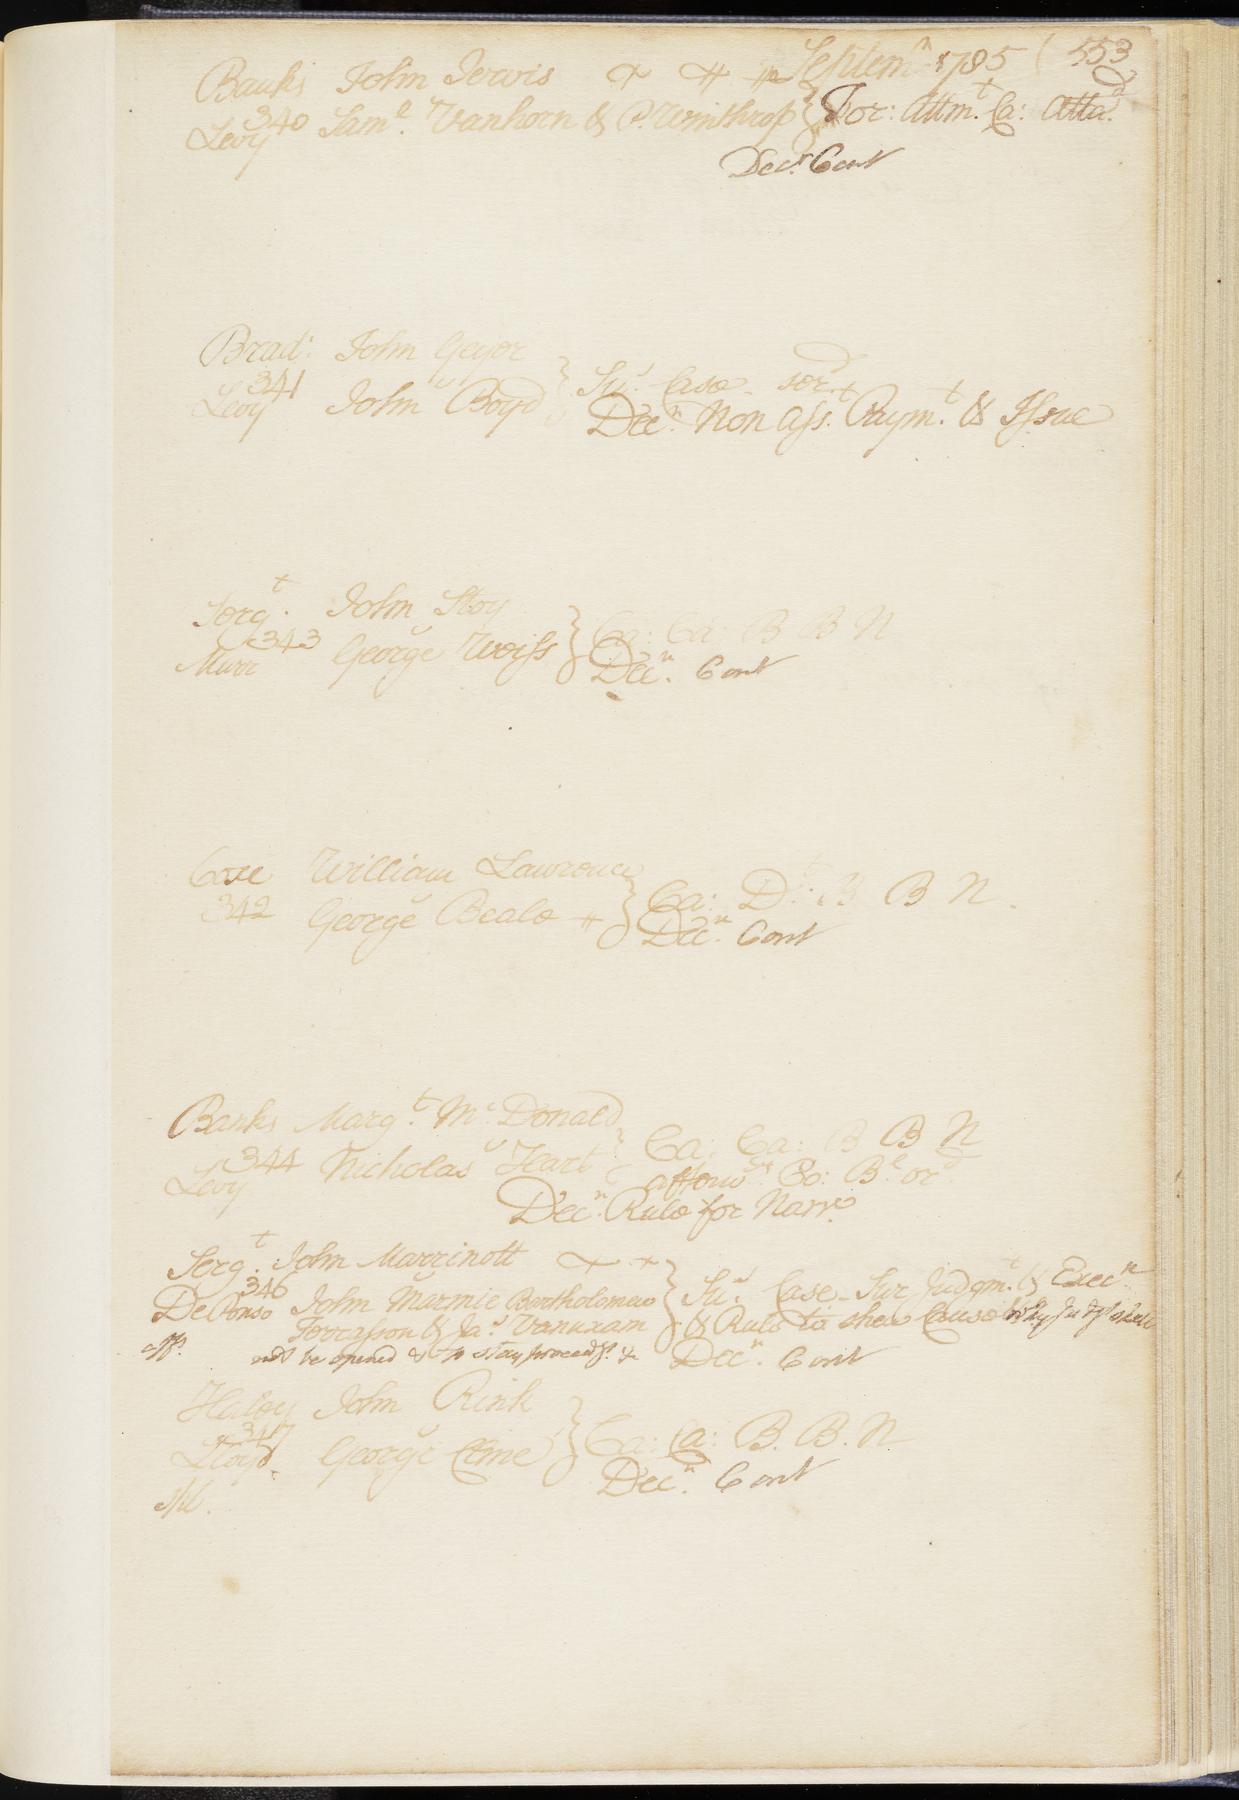 Septem.r 1785 ( 553
Banks John Jervis
340
Levy Sam.l Vanhorn & P. Winthrop } For: Attm.t Ca: Atta.d
Dec.r Cont
Brad: John Geyer
341 Su.s Case ser.d
Levy John Boyd Dec.n Non Ass. Paym.t & Issue
Serg.t John Stoy
343 } Ca: Ca: B B N
Murr George Weiss Dec.n Cont
Coxe William Lawrence
342 George Beale } Ca: D.t B B N.
Dec.n Cont
Banks Marg.t Mc Donald
344 Ca: Ca: B B N
Levy Nicholas Hart afterw.ds Co: B.l or.d
Dec.n Rule for Narr.
Serg.t John Marrinott
346
De Ponso John Marmie Bartholomew } Su.s Case Sur Judgm.t & Exec.n
Terrasson & Ja.s Vanuxam & Rule to shew Cause why Judgt shall
not be opened & to stay proceedgs. &c Dec.n Cont
Haley John Rink
347 } Ca: Ca: B. B. N
Lloyd. George Cline
Dec.n Cont